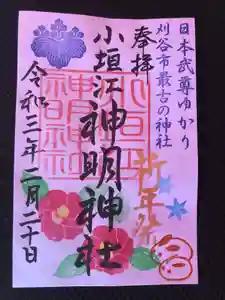 日本武尊ゆかり
刈谷市最古の神社
奉拝
小垣江神明神社
新年祭
令和三年二月二十日